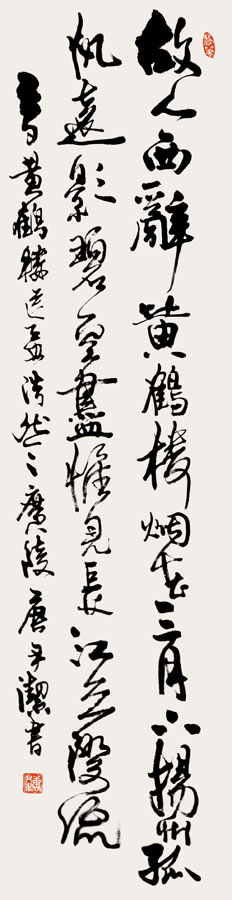 故人西辭黄鶴樓烟花三月下揚州孤
帆遠影碧空盡惟見長江天際流
李白黄鶴樓送孟浩然之廣陵 唐 潔書